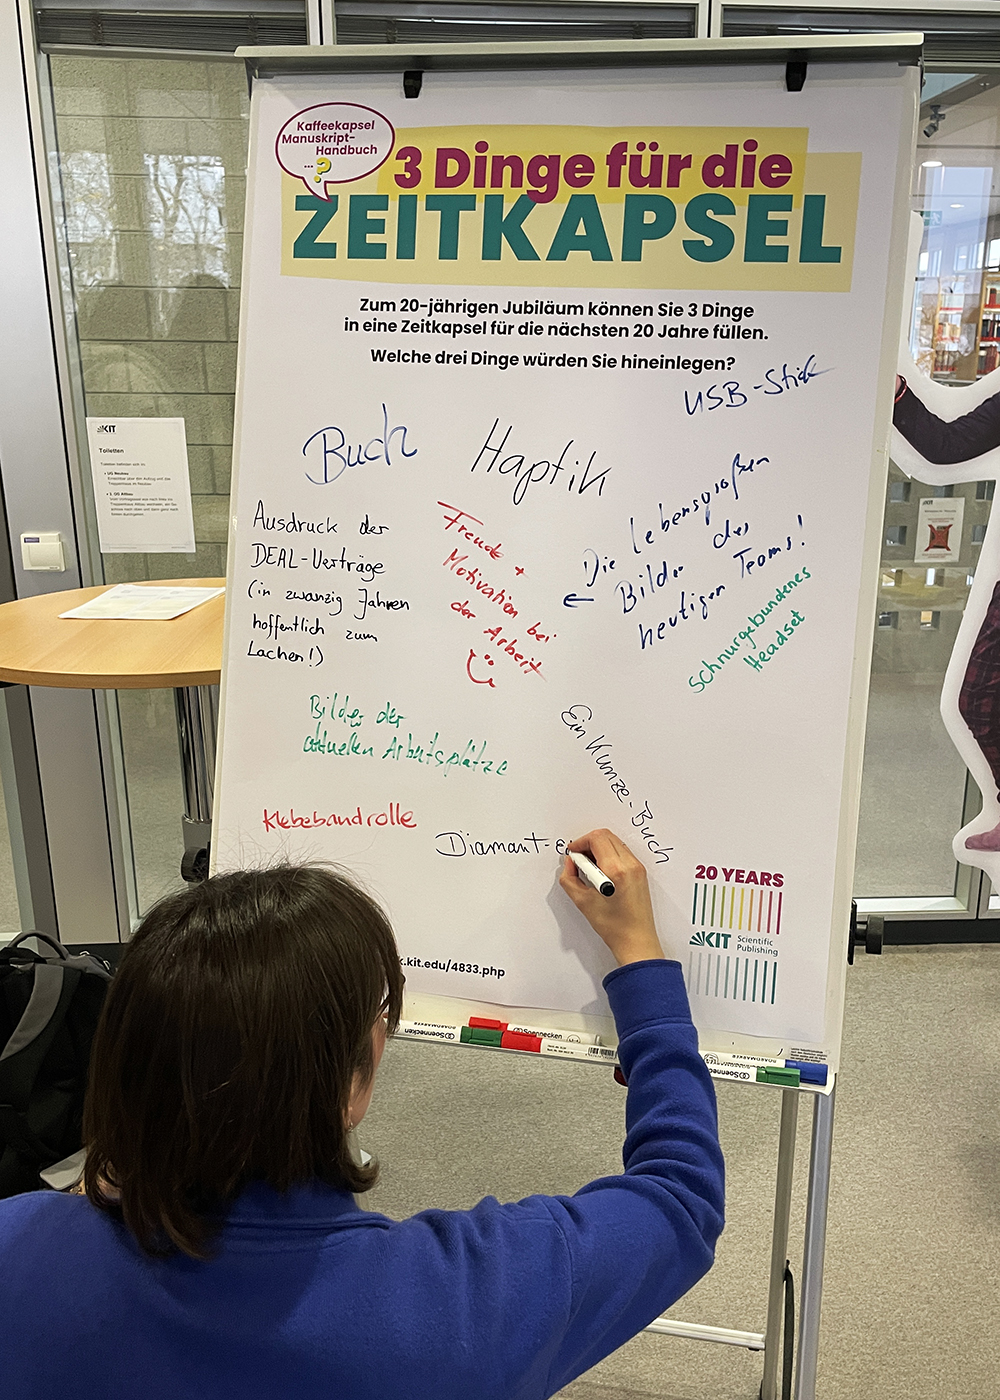 Kaffeekapsel
Manuskript-
Handbuch
... ?
3 Dinge für die
ZEITKAPSEL
Zum 20-jährigen Jubiläum können Sie 3 Dinge
in eine Zeitkapsel für die nächsten 20 Jahre füllen.
Welche drei Dinge würden Sie hineinlegen?
USB-Stick
Buch
Haptik
Ausdruck der
DEAL-Verträge
(in zwanzig Jahren
hoffentlich zum
Lachen!)
Freude +
Motivation bei
der Arbeit
← Die lebensgroßen
Bilder des
heutigen Teams!
schnurgebundenes
Headset
Bilder der
aktuellen Arbeitsplätze
Ein Kunze-Buch
Klebebandrolle
Diamant-
20 YEARS
KIT Scientific
Publishing
.kit.edu/4833.php
KIT
Toiletten
Soennecken
Soennecken
Soennecken
BOARDMARKER